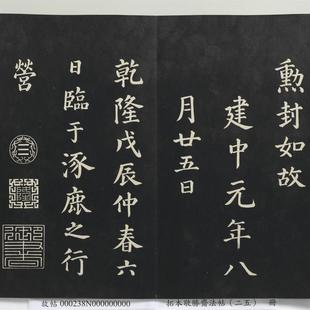 勳封如故
建中元年八
月廿五日
乾隆戊辰仲春六
日臨于涿鹿之行
營
故帖 000238N000000000 拓本敬勝齋法帖（二五） 冊